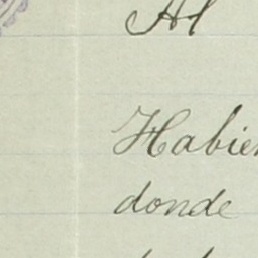 Al
Habien
donde